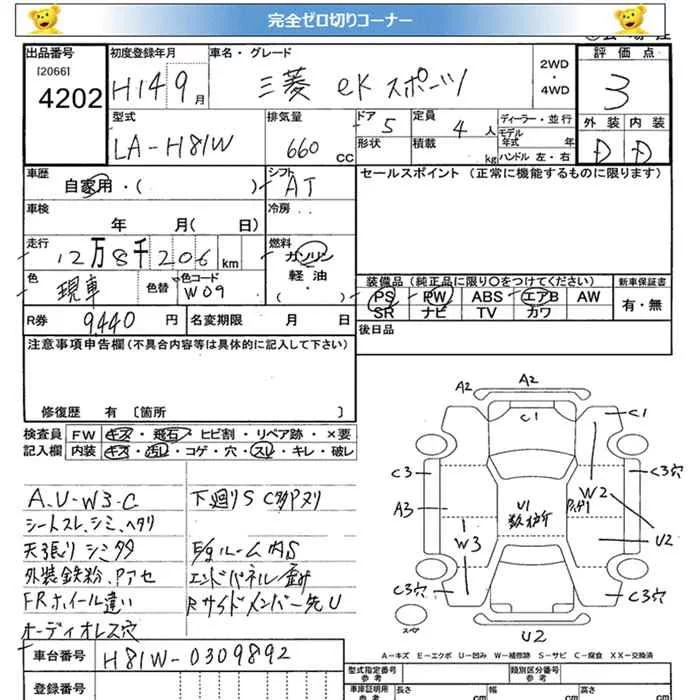 完全ゼロ切りコーナー
出品番号 初度登録年月 車名・グレード 2WD・4WD 評価点
[2066] 4202 H14 9月 三菱 eKスポーツ 3
型式 排気量 ドア 5 定員 4人 ディーラー・並行 外装 内装
LA-H81W 660 CC 形状 積載 kg モデル年式 年 ハンドル 左・右 D D
車歴 シフト セールスポイント (正常に機能するものに限ります)
自家用・( ) AT
車検 冷房
年 月( 日)
走行 燃料
12万8千206km ガソリン
軽油
( )
色 色替 色コード
現車 W09
装備品 (純正品に限り○をつけてください) 新車保証書
PS PW ABS エアB AW 有・無
SR ナビ TV カワ
R券 9,440円 名変期限 月 日 後日品
注意事項申告欄(不具合内容等は具体的に記入して下さい)
修復歴 有 〔箇所 〕
検査員 FW キズ・飛石・ヒビ割・リペア跡・×要
記入欄 内装 キズ・汚レ・コゲ・穴・スレ・キレ・破レ
A.U-W3.C 下廻りS C多Pヌリ
シートスレ、シミ、ヘタリ
天張りシミ多 E/gルーム内S
外装鉄粉、Pアセ エンドパネル歪み
FRホイール違い Rサイドメンバー先U
オーディオレス穴
車台番号 H81W-0309892
登録番号
A2 A2
C1 C1
C3 C3穴
A3 U1 W2
数ヶ所
W3 U2
C3穴 C3穴
スペア
U2
A-キズ E-エクボ U-凹み W-補修跡 S-サビ C-腐食 XX-交換済
型式指定番号 参考 類別区分番号 参考
車庫証明用 参考 長さ cm 幅 cm 高さ cm